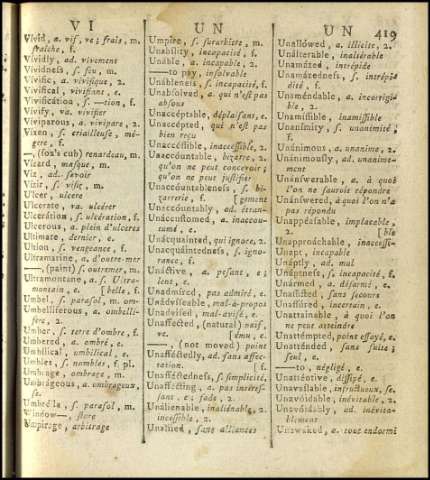 VI
UN
UN
419
Vivid, a. vif, ve; frais, m.
fraîche, f.
Vividly, ad. vivement
Vividness, s. feu, m.
Vivific, a. vivifique, 2.
Vivifical, vivifiant, e.
Vivification, s. —tion, f.
Vivify, va. vivifier
Viviparous, a. vivipare, 2.
Vixen, s. criailleuse, mé-
gere, f.
—, (fox's cub) renardeau, m.
Vizard, masque, m.
Viz, ad. savoir
Vizir, s. visir, m.
Ulcer, ulcere
Ulcerate, va. ulcérer
Ulceration, s. ulcération, f.
Ulcerous, a. plein d'ulceres
Ultimate, dernier, e.
Ultion, s. vengeance, f.
Ultramarine, a. d'outre-mer
—, (paint) s. outremer, m.
Ultramontane, a. s. Ultra-
montain, e. [belle, f.
Umbel, s. parasol, m. om-
Umbelliferous, a. ombelli-
fere, 2.
Umber, s. terre d'ombre, f.
Umbered, a. ombré, e.
Umbilical, umbilical, e.
Umbles, s. nombles, f. pl.
Umbrage, ombrage, m.
Umbrageous, a. umbrageux,
se.
Umbrella, s. parasol, m.
Window—, store
Umpirage, arbitrage
Umpire, s. surarbitre, m.
Unability, incapacité, f.
Unable, a. incapable, 2.
—to pay, insolvable
Unableness, s. incapacité, f.
Unabsolved, a. qui n'est pas
absous
Unacceptable, déplaisant, e.
Unaccepted, qui n'est pas
bien reçu
Unaccessible, inaccessible, 2.
Unaccountable, bizarre, 2.
qu'on ne peut concevoir;
qu'on ne peut justifier
Unaccountableness, s. bi-
zarrerie, f. [gement
Unaccountably, ad. étran-
Unaccustomed, a. inaccou-
tumé, e.
Unacquainted, qui ignore, 2.
Unacquaintedness, s. igno-
rance, f.
Unactive, a. pesant, e;
lent, e.
Unadmired, pas admiré, e.
Unadviseable, mal-à-propos
Unadvised, mal-avisé, e.
Unaffected, (natural) naïf,
ve. [ému, e.
—, (not moved) point
Unaffectedly, ad. sans affec-
tation. [f.
Unaffectedness, s. simplicité,
Unaffecting, a. pas intéres-
sant, e; fade, 2.
Unalienable, inaliénable, 2.
Unallied, sans alliances
Unallowed, a. illicite, 2.
Unalterable, inaltérable
Unamazed, intrépide
Unamazedness, s. intrépi-
dité, f.
Unamendable, a. incorrigi-
ble, 2.
Unamissible, inamissible
Unanimity, s. unanimité,
f.
Unanimous, a. unanime, 2.
Unanimously, ad. unanime-
ment
Unanswerable, a. à quoi
l'on ne sauroit répondre
Unanswered, à quoi l'on n'a
pas répondu
Unappeasable, implacable,
2. [ble
Unapproachable, inaccessi-
Unapt, incapable
Unaptly, ad. mal
Unaptness, s. incapacité, f.
Unarmed, a. désarmé, e.
Unassisted, sans secours
Unassured, incertain, e.
Unattainable, à quoi l'on
ne peut atteindre
Unattempted, point essayé, e.
Unattended, sans suite;
seul, e.
—to, négligé, e.
Unattentive, dissipé, e.
Unavailable, infructueux, se.
Unavoidable, inévitable, 2.
Unavoidably, ad. inévita-
blement
Unawaked, a. tout endormi